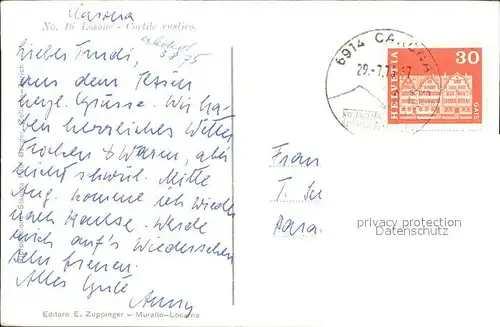 Carona
No. 16 Losone - Cortile rustico.
erhalten
3.8.75
Liebes Trudi,
aus dem Tessin
herzl. Grüsse. Wir ha-
ben herrliches Wetter
Trocken & Warm, aber
nicht schwül. Mitte
Aug. komme ich wieder
nach Hause. Werde
mich auf's Wiedersehen
sehr freuen.
Alles Gute
Anny
Editore E. Zuppinger - Muralto-Locarno
6914 CARONA
29.-7.75
HELVETIA
30
GAIS
Frau
T. Su
Aara
privacy protection
Datenschutz